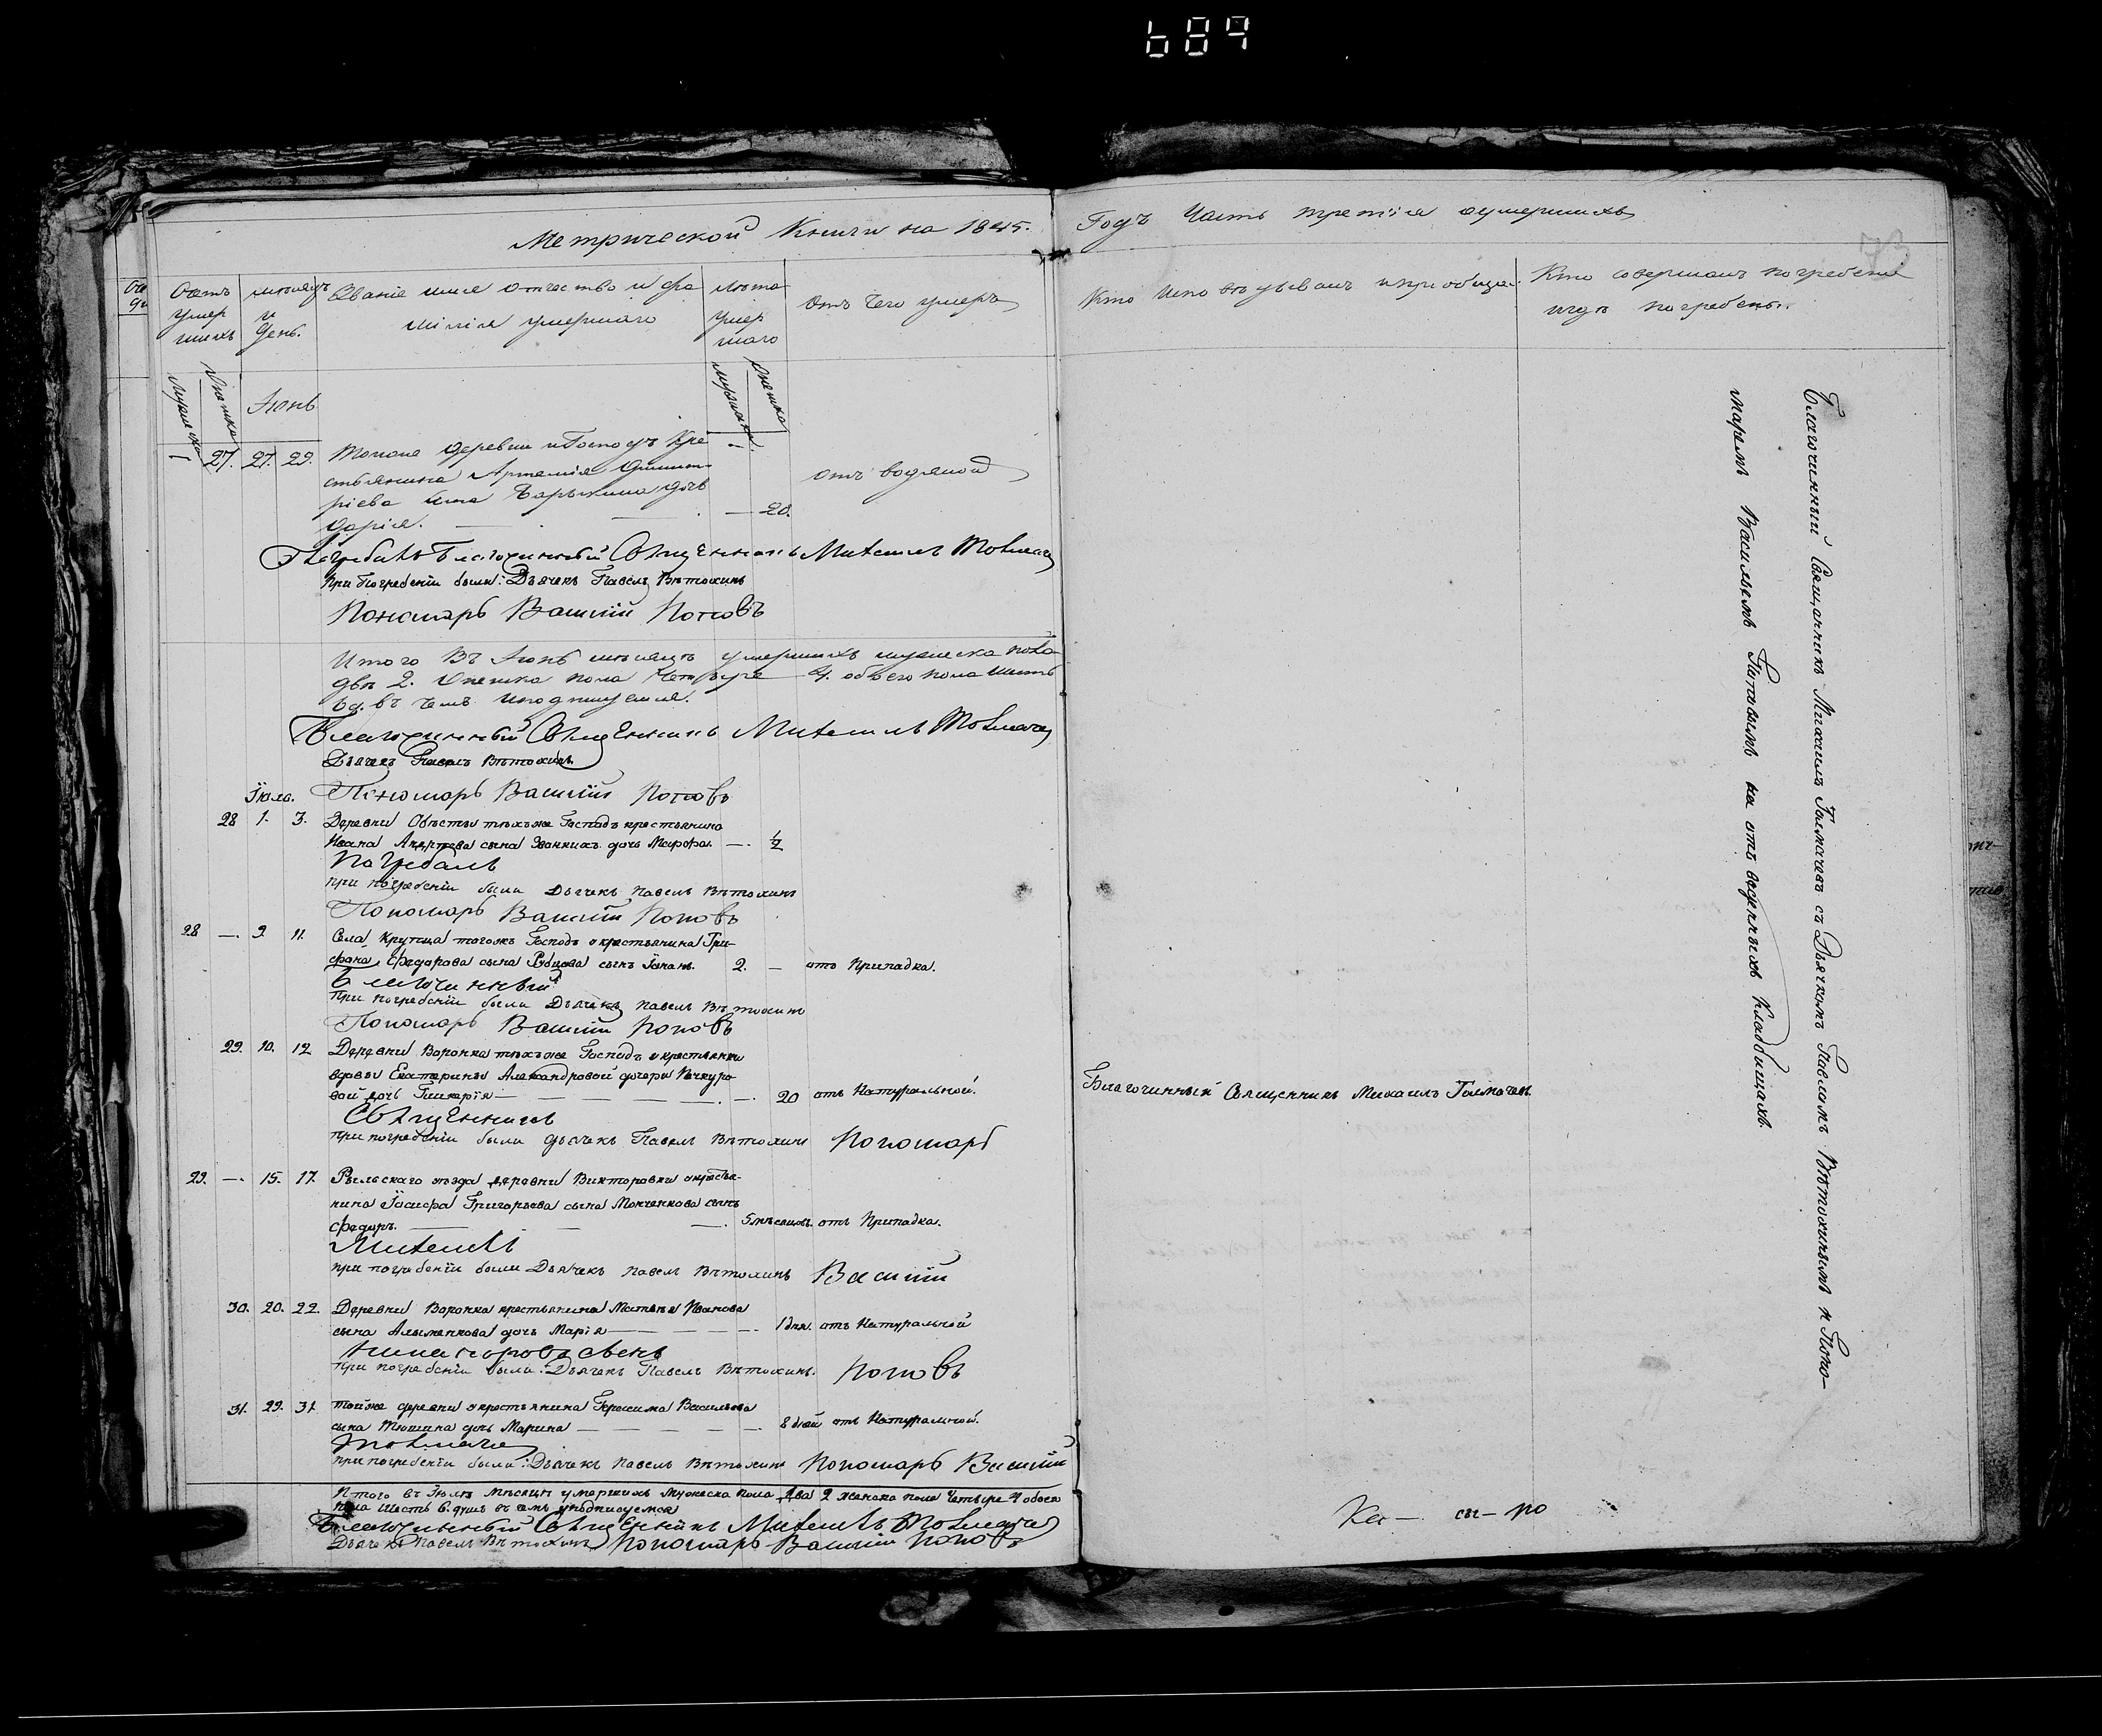 689
Метрической Книги на 1845.
Годъ Часть третія оумершихъ
73
Счетъ умершихъ
мѣсяцъ и день.
Званіе имя отчество и фамилія умершаго
лѣта умершаго
отъ чего умеръ
Кто исповѣдывалъ и приобща.
Кто совершалъ погребеніе и гдѣ погребены.
Мужеска
Женска
Іюнь
Мужеска
Женска
27. 27. 29. Деревни Господъ Кре
стьянина Артемія Дмит
ріева сына дочь
Дарія. — — 20. отъ водяной
Погребалъ Благочинный Священникъ Михаилъ Толмачевъ
При Погребеніи были: Дьячекъ Павелъ Вѣтохинъ
Пономарь Василій Поповъ
Итого Въ Іюнѣ мѣсяцѣ умершихъ мужеска пола
два 2. Женска пола Четыре 4. обоего пола шесть
6 д. въ чемъ и подпишемся.
Благочинный Священникъ Михаилъ Толмачевъ
Дьячекъ Павелъ Вѣтохинъ
Пономарь Василій Поповъ
Іюль.
28 1. 3. Деревни тѣхъже Господъ крестьянина
Ивана сына дочь —. ½
Погребалъ
при погребеніи были Дьячекъ Павелъ Вѣтохинъ
Пономарь Василій Поповъ
28 —. 9 11. Села Крупца тогожъ Господъ крестьянина Три-
фона Федорова сына Рубцова сынъ 2. — отъ Припадка.
Благочинный
При погребеніи были Дьячекъ Павелъ Вѣтохинъ
Пономарь Василій Поповъ
29. 10. 12 Деревни Воронка тѣхъже Господъ крестьянки
вдовы Екатерины Александровой дочери
вой дочь Гликерія — — — — —. —. 20 отъ Натуральной.
Благочинный Священникъ Михаилъ Толмачевъ.
Священникъ
При погребеніи были дьячекъ Павелъ Вѣтохинъ Пономарь
29. —. 15. 17. Рыльскаго уѣзда деревни Викторовки крестья-
нина Іосифа Григорьева сына Мокченкова сынъ
Федоръ. — — —. 5 мѣсяцовъ. отъ Припадка.
Михаилъ
при погребеніи были Дьячекъ Павелъ Вѣтохинъ Василій
30. 20. 22. Деревни Воронка крестьянина Матвѣя Иванова
сына дочь Марія — — — —. 1 дня. отъ Натуральной
при погребеніи были: Дьячекъ Павелъ Вѣтохинъ. Поповъ
31. 29. 31. тойже деревни крестьянина Герасима Васильева
сына Тюшина дочь Марина — — — — —. 8 дней отъ Натуральной.
Толмачевъ
при погребеніи были: Дьячекъ Павелъ Вѣтохинъ Пономарь Василій
Итого въ Іюлѣ мѣсяцѣ умершихъ Мужеска пола два 2 женска пола Четыре 4 обоего
пола шесть 6. душъ въ чемъ и подписуемся
Благочинный Священникъ Михаилъ Толмачевъ
Дьячекъ Павелъ Вѣтохинъ Пономарь Василій Поповъ
Благочинный Священникъ Михаилъ Толмачевъ съ Дьячкомъ Павломъ Вѣтохинымъ и Поно-
маремъ Васильемъ Поповымъ на отъ веденныхъ Кладбищахъ.
Ка— съ— по